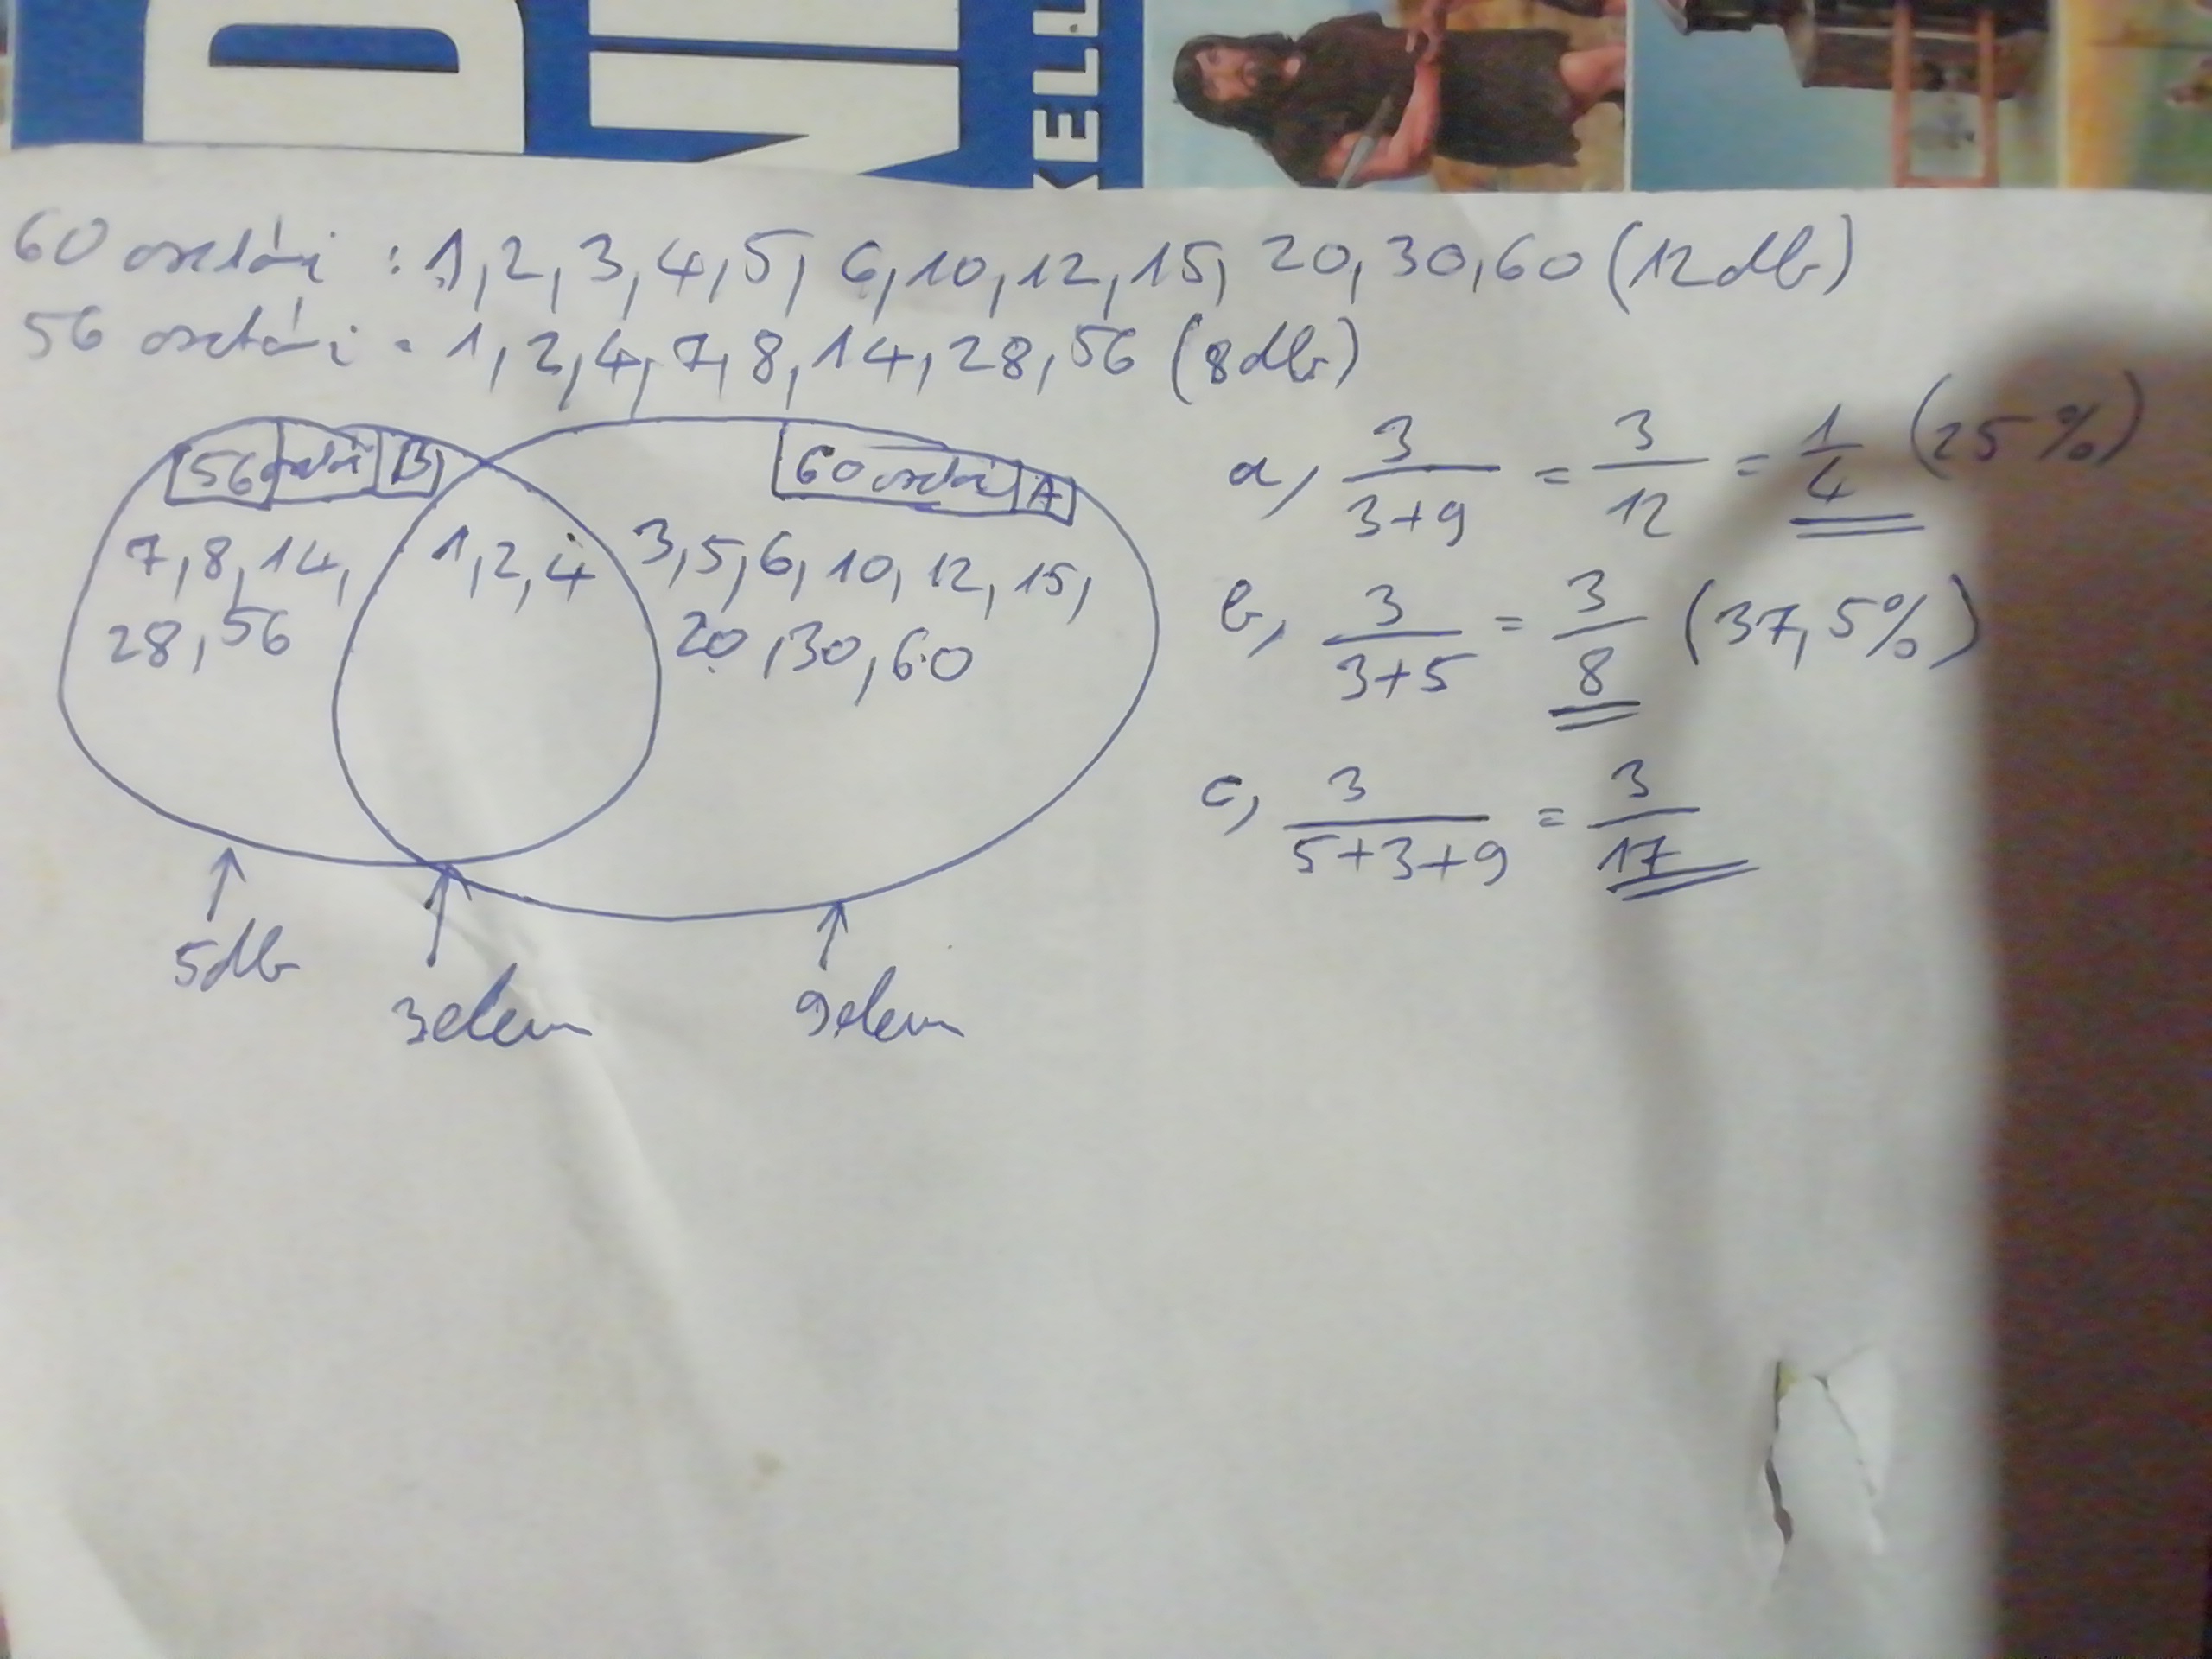 KELL
60 osztói : 1, 2, 3, 4, 5, 6, 10, 12, 15, 20, 30, 60 (12db)
56 osztói : 1, 2, 4, 7, 8, 14, 28, 56 (8db)
56 osztói B
60 osztói A
7, 8, 14,
28, 56
1, 2, 4
3, 5, 6, 10, 12, 15,
20, 30, 60
5db
3 elem
9 elem
a, 3/(3+9) = 3/12 = 1/4 (25%)
b, 3/(3+5) = 3/8 (37,5%)
c, 3/(5+3+9) = 3/17